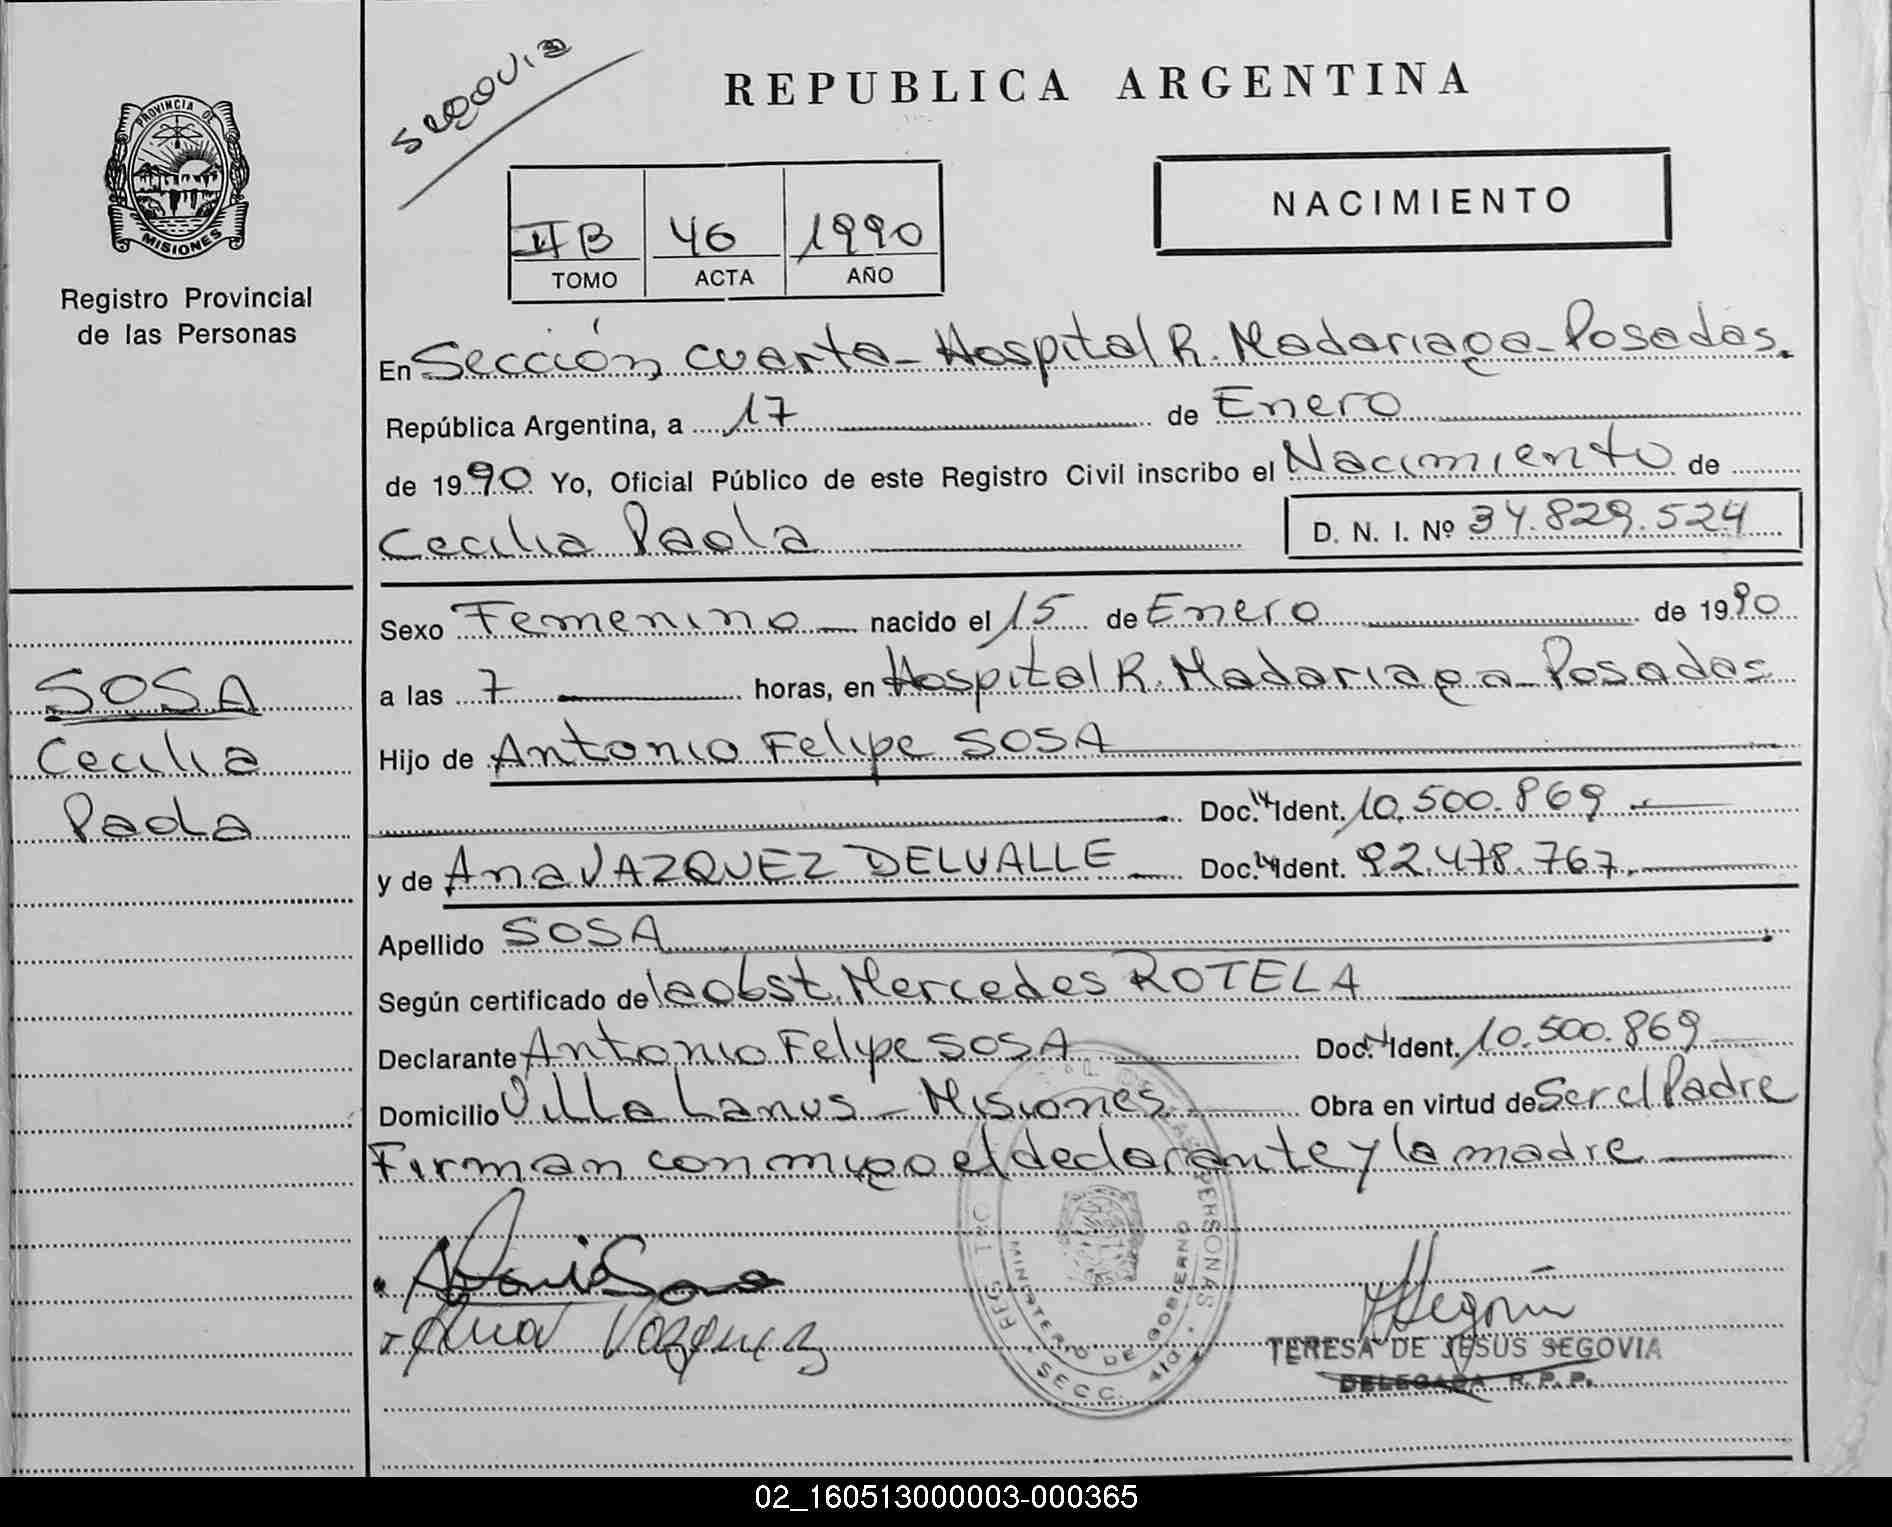 SEGOVIA
REPUBLICA ARGENTINA
PROVINCIA DE
MISIONES
Registro Provincial
de las Personas
II B 46 1990
TOMO ACTA AÑO
NACIMIENTO
En Sección cuarta - Hospital R. Madariaga - Posadas.
República Argentina, a 17 de Enero
de 1990 Yo, Oficial Público de este Registro Civil inscribo el Nacimiento de
Cecilia Paola D. N. I. Nº 34.829.524
Sexo Femenino nacido el 15 de Enero de 1990
a las 7 horas, en Hospital R. Madariaga - Posadas
Hijo de Antonio Felipe SOSA
Doc. Ident. 10.500.869
y de Ana VAZQUEZ DELVALLE Doc. Ident. 92.478.767
Apellido SOSA
Según certificado de la obst. Mercedes ROTELA
Declarante Antonio Felipe SOSA Doc. Ident. 10.500.869
Domicilio Villa Lanus - Misiones Obra en virtud de Ser el Padre
Firman conmigo el declarante y la madre
SOSA
Cecilia
Paola
Ana Vazquez
MINISTERIO DE GOBIERNO
SECC.
TERESA DE JESUS SEGOVIA
DELEGADA R. P. P.
02_160513000003-000365